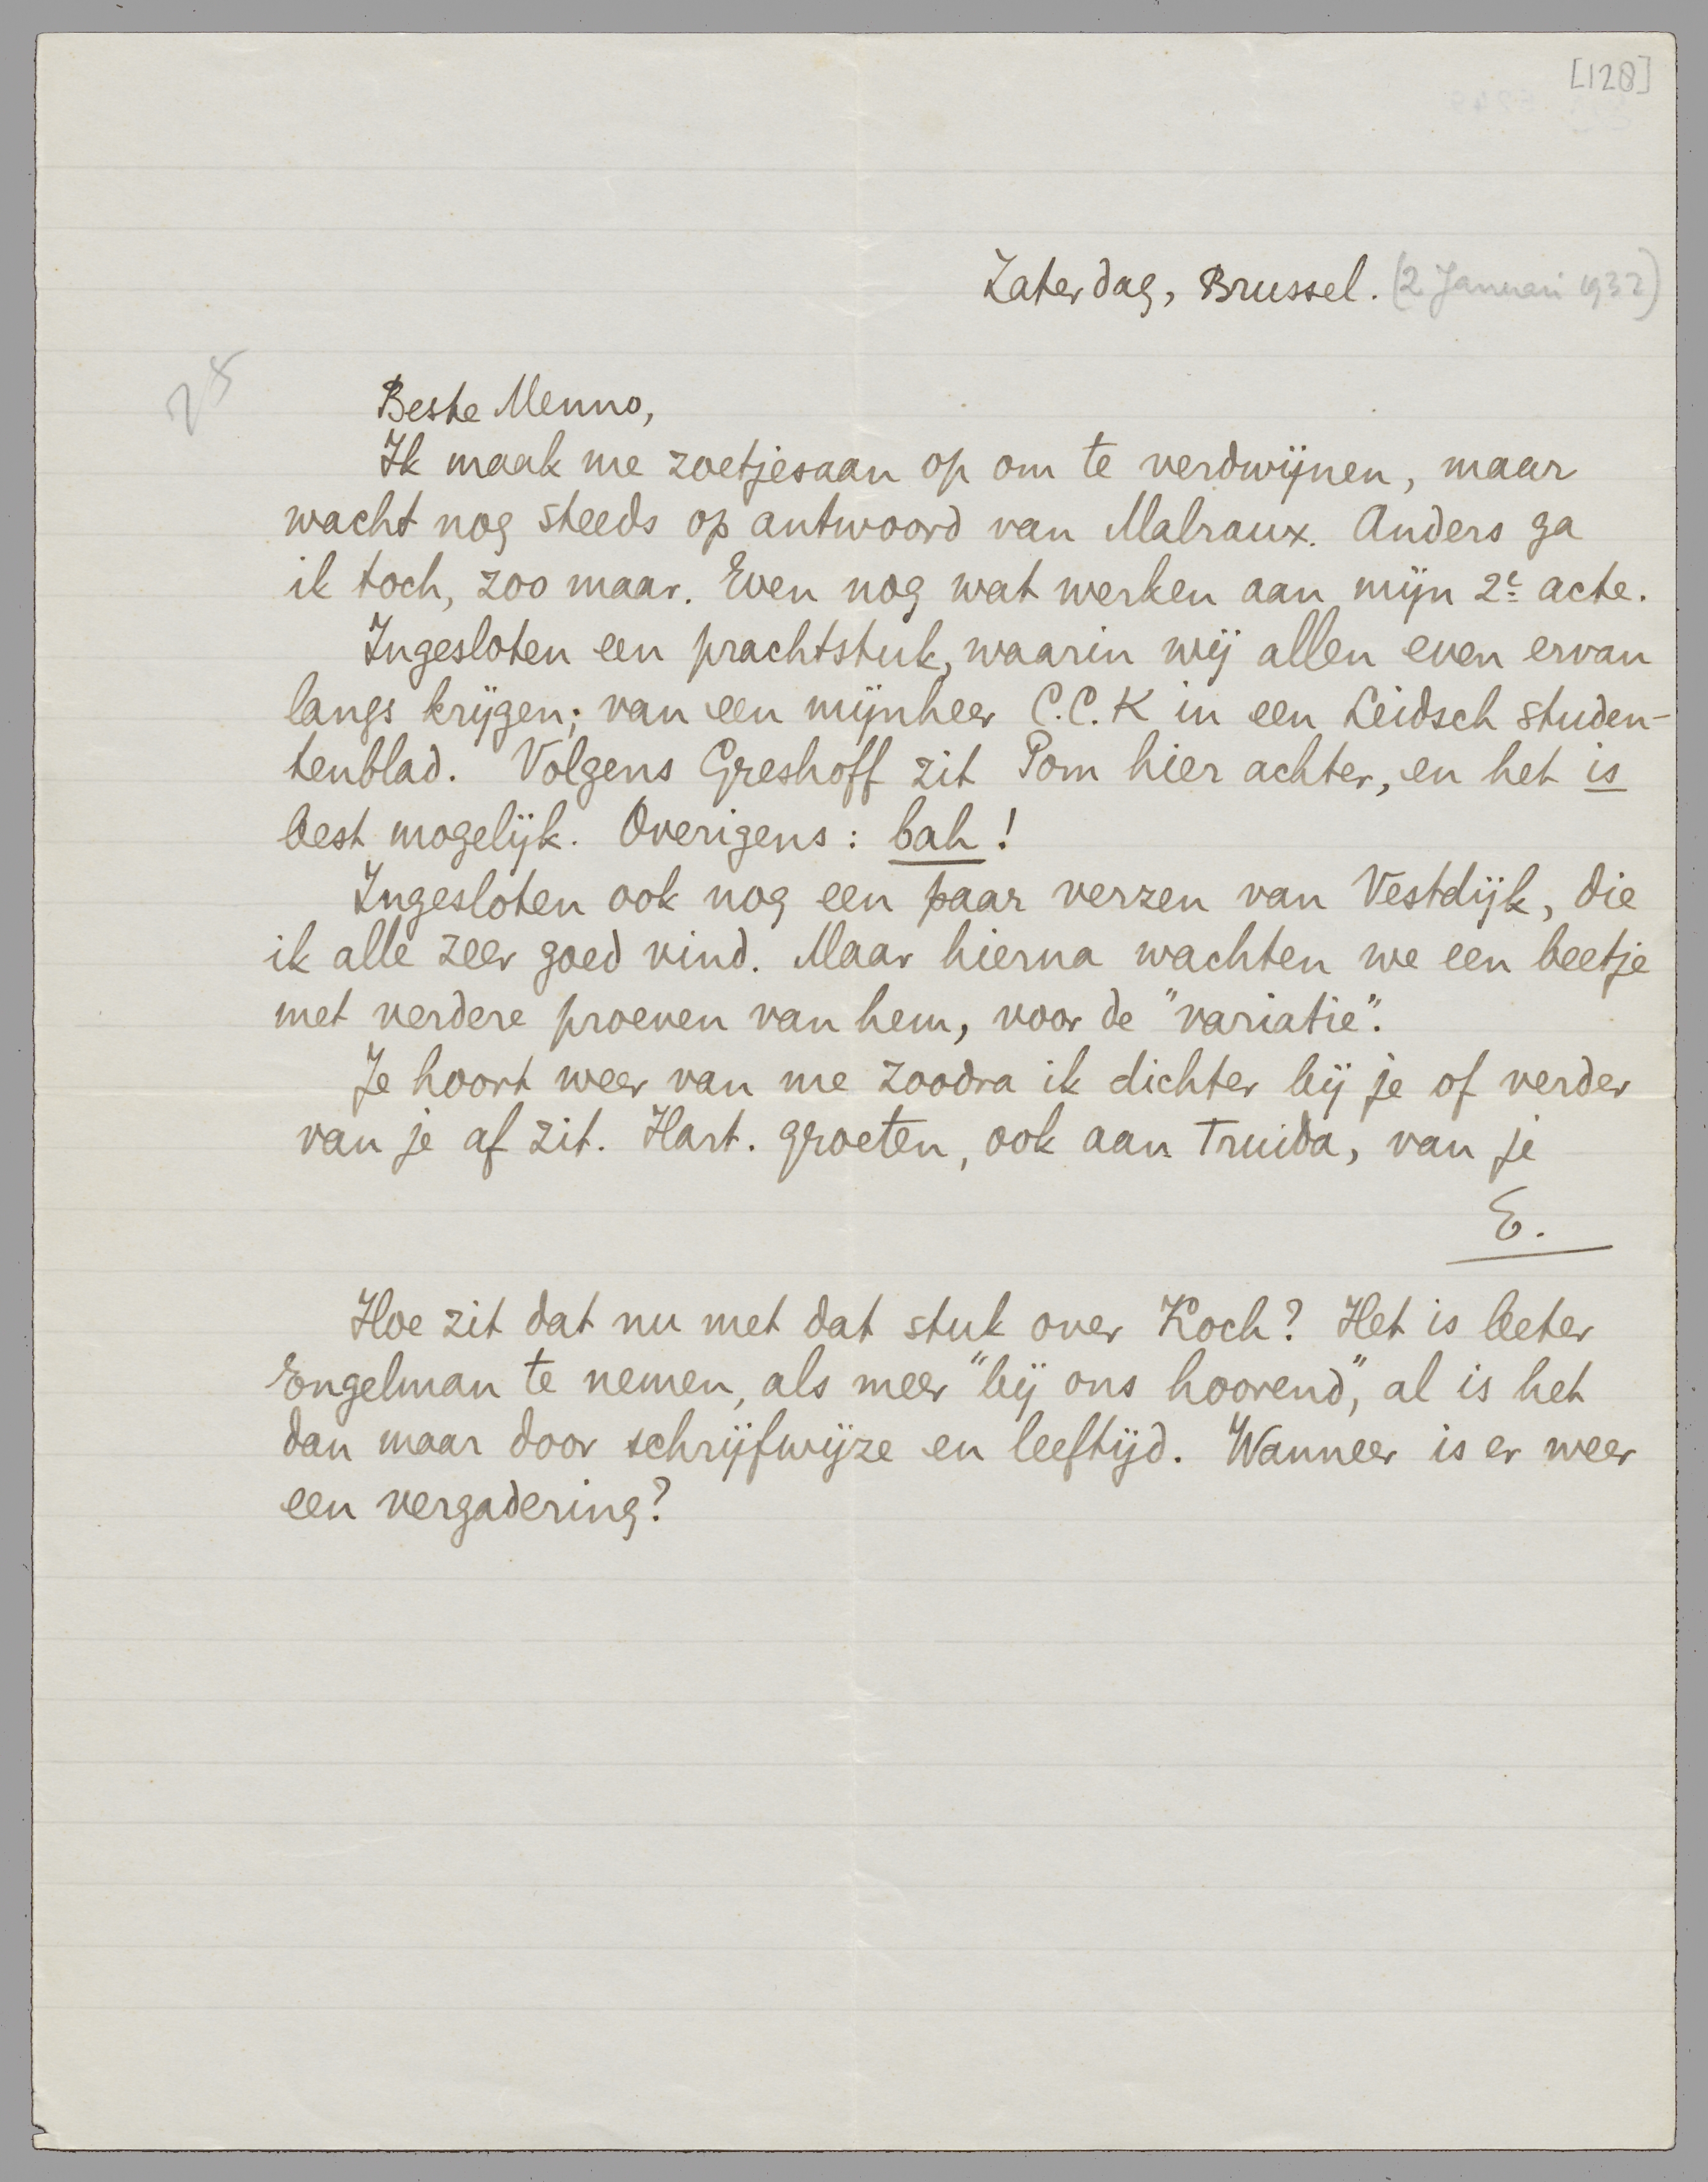 [128]
Zaterdag, Brussel. (2 Januari 1932)
25
Beste Menno,
Ik maak me zoetjesaan op om te verdwijnen, maar
wacht nog steeds op antwoord van Malraux. Anders ga
ik toch, zoo maar. Even nog wat werken aan mijn 2e acte.
Ingesloten een prachtstuk, waarin wij allen even ervan
langs krijgen; van een mijnheer C.C.K in een Leidsch studen-
tenblad. Volgens Greshoff zit Pom hier achter, en het is
best mogelijk. Overigens: bah!
Ingesloten ook nog een paar verzen van Vestdijk, die
ik alle zeer goed vind. Maar hierna wachten we een beetje
met verdere proeven van hem, voor de "variatie".
Je hoort weer van me zoodra ik dichter bij je of verder
van je af zit. Hart. groeten, ook aan Truida, van je
E.
Hoe zit dat nu met dat stuk over Koch? Het is beter
Engelman te nemen, als meer "bij ons hoorend", al is het
dan maar door schrijfwijze en leeftijd. Wanneer is er weer
een vergadering?